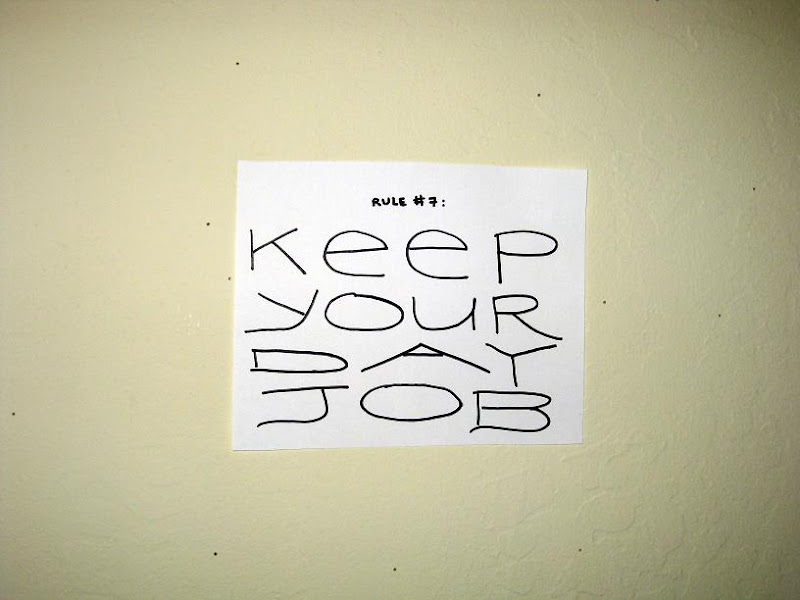 RULE #7:
KeeP
YOUR
DAY
JOB